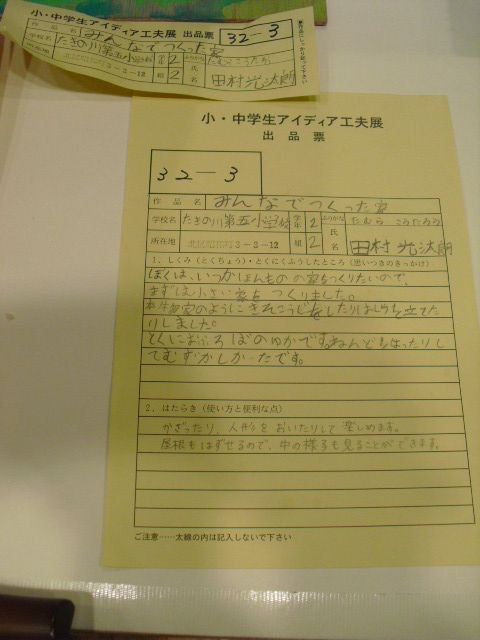 小・中学生アイディア工夫展 出品票
32-3
作品名 みんなでつくった家
学校名 たきの川第五小学校 学年 2 ふりがな
所在地 3-2-12 組 2 氏名 田村光汰朗
小・中学生アイディア工夫展
出品票
32-3
作品名 みんなでつくった家
学校名 たきの川第五小学校 学年 2 ふりがな たむら こうたろう
所在地 3-2-12 組 2 氏名 田村光汰朗
1.しくみ(とくちょう)・とくにくふうしたところ(思いつきのきっかけ)
ぼくは、いつかほんものの家をつくりたいので、
まずは小さい家をつくりました。
本物の家のようにきそこうじをしたりはしらを立てた
りしました。
とくにおふろばのゆかです。ねんどをぬったりし
てむずかしかったです。
2.はたらき(使い方と便利な点)
かざったり、人形をおいたりして楽しめます。
屋根もはずせるので、中の様子も見ることができます。
ご注意……太線の内は記入しないで下さい